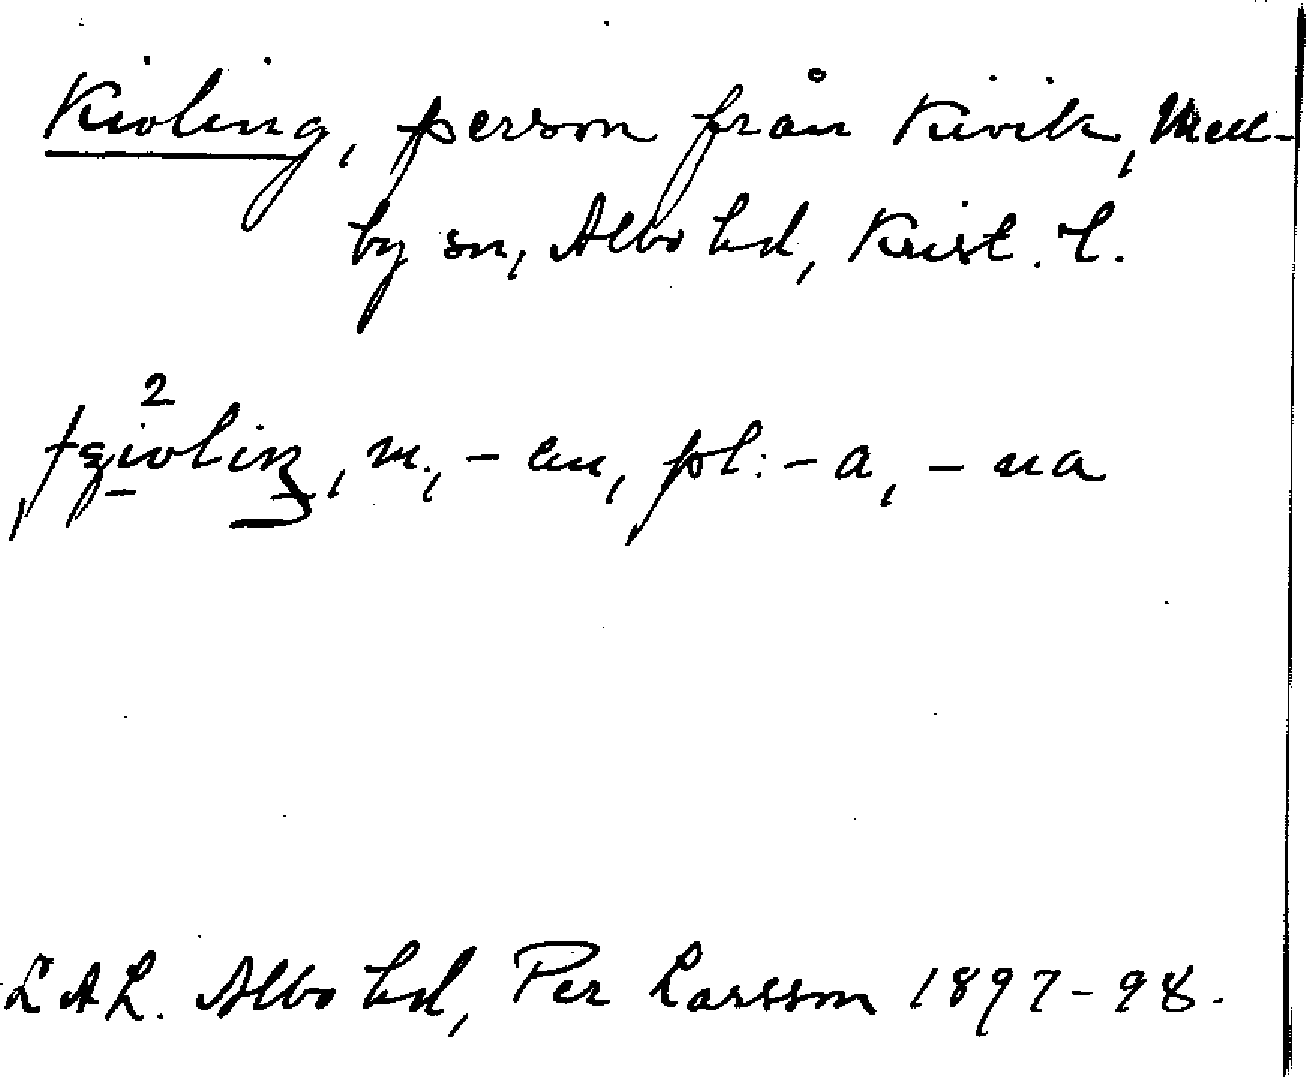 Kivling, person från Kivik, Mell-
by sn, Albo hd, Krist. l.
m., -en, pl: -a, -na
LAL. Albo hd, Per Larsson 1897-98.